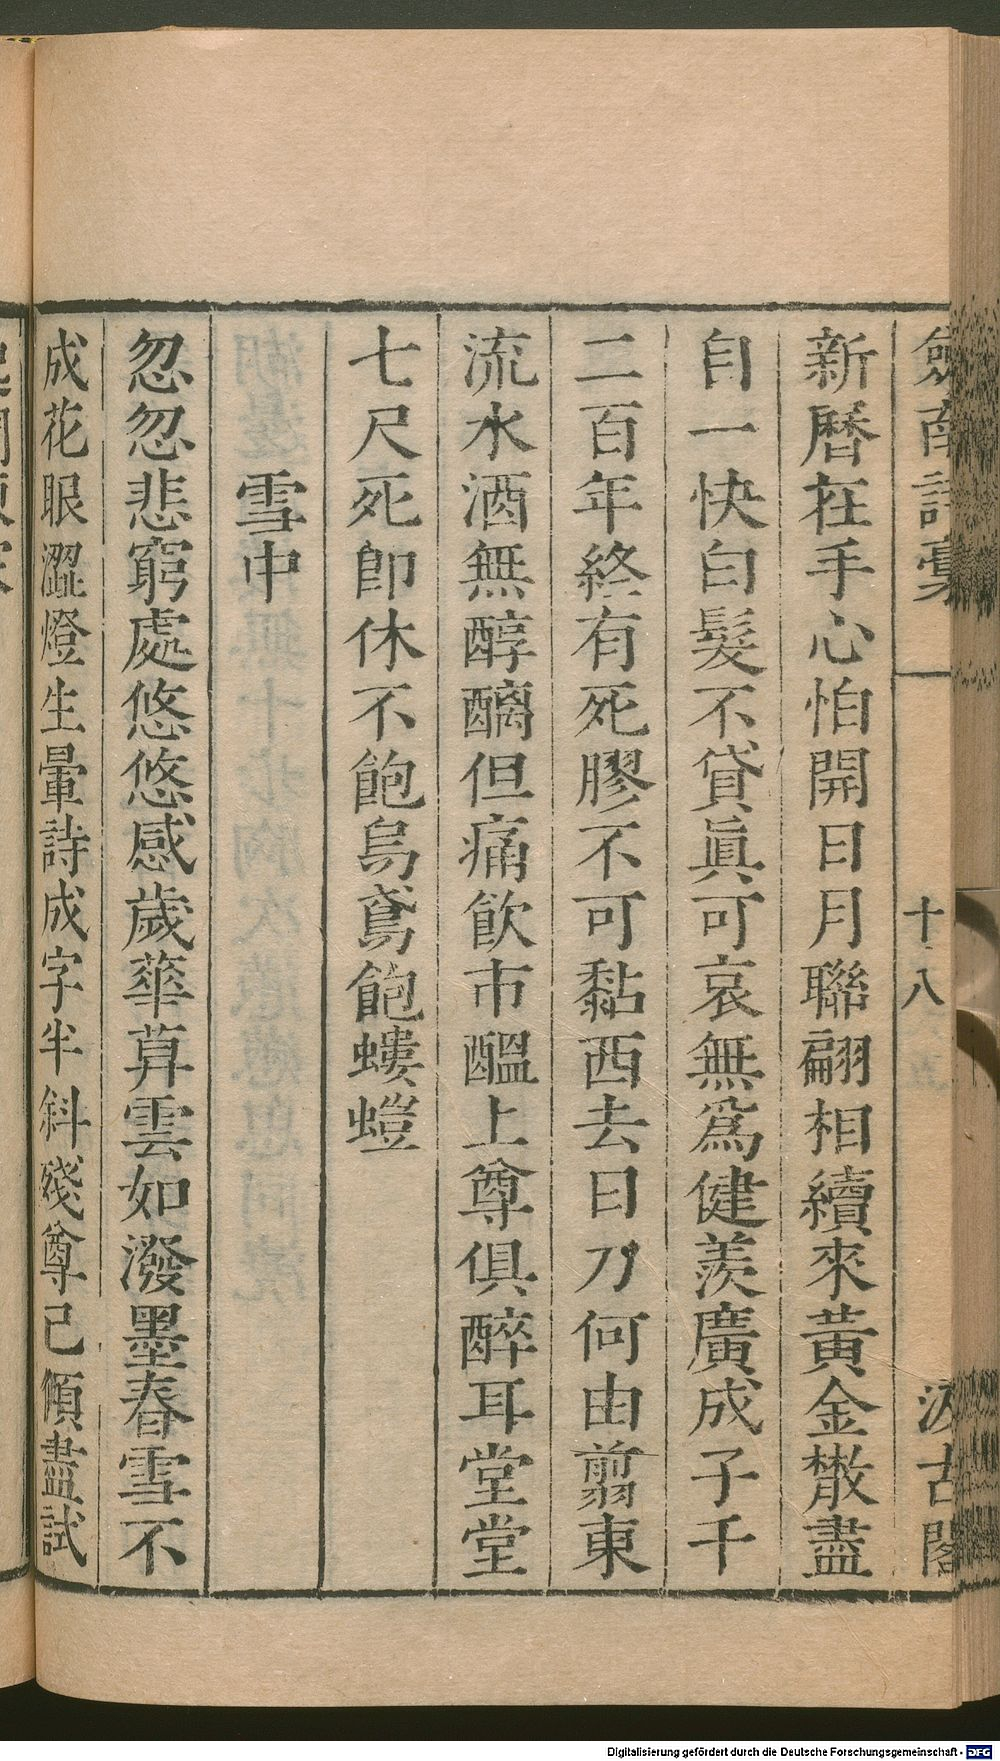 劒南詩稾
十八
汲古閣
新曆在手心怕開日月聯翩相續來黃金㪚盡
自一快白髮不貸眞可哀無爲健羨廣成子千
二百年終有死膠不可黏西去日刀何由翦東
流水酒無醇醨但痛飮市醞上尊俱醉耳堂堂
七尺死卽休不飽烏鳶飽螻螘
雪中
忽忽悲窮處悠悠感歲華萛雲如潑墨春雪不
成花眼澀燈生暈詩成字半斜殘尊已傾盡試
Digitalisierung gefördert durch die Deutsche Forschungsgemeinschaft - DFG